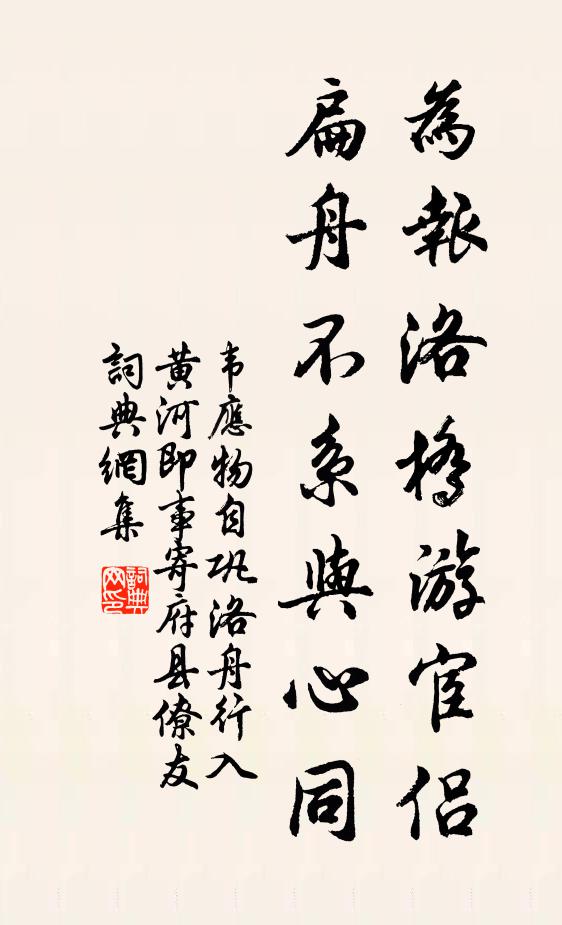 為報洛橋游宦侶
扁舟不系與心同
韦應物自巩洛舟行入
黄河即事寄府县僚友
詞典網集
詞典网印